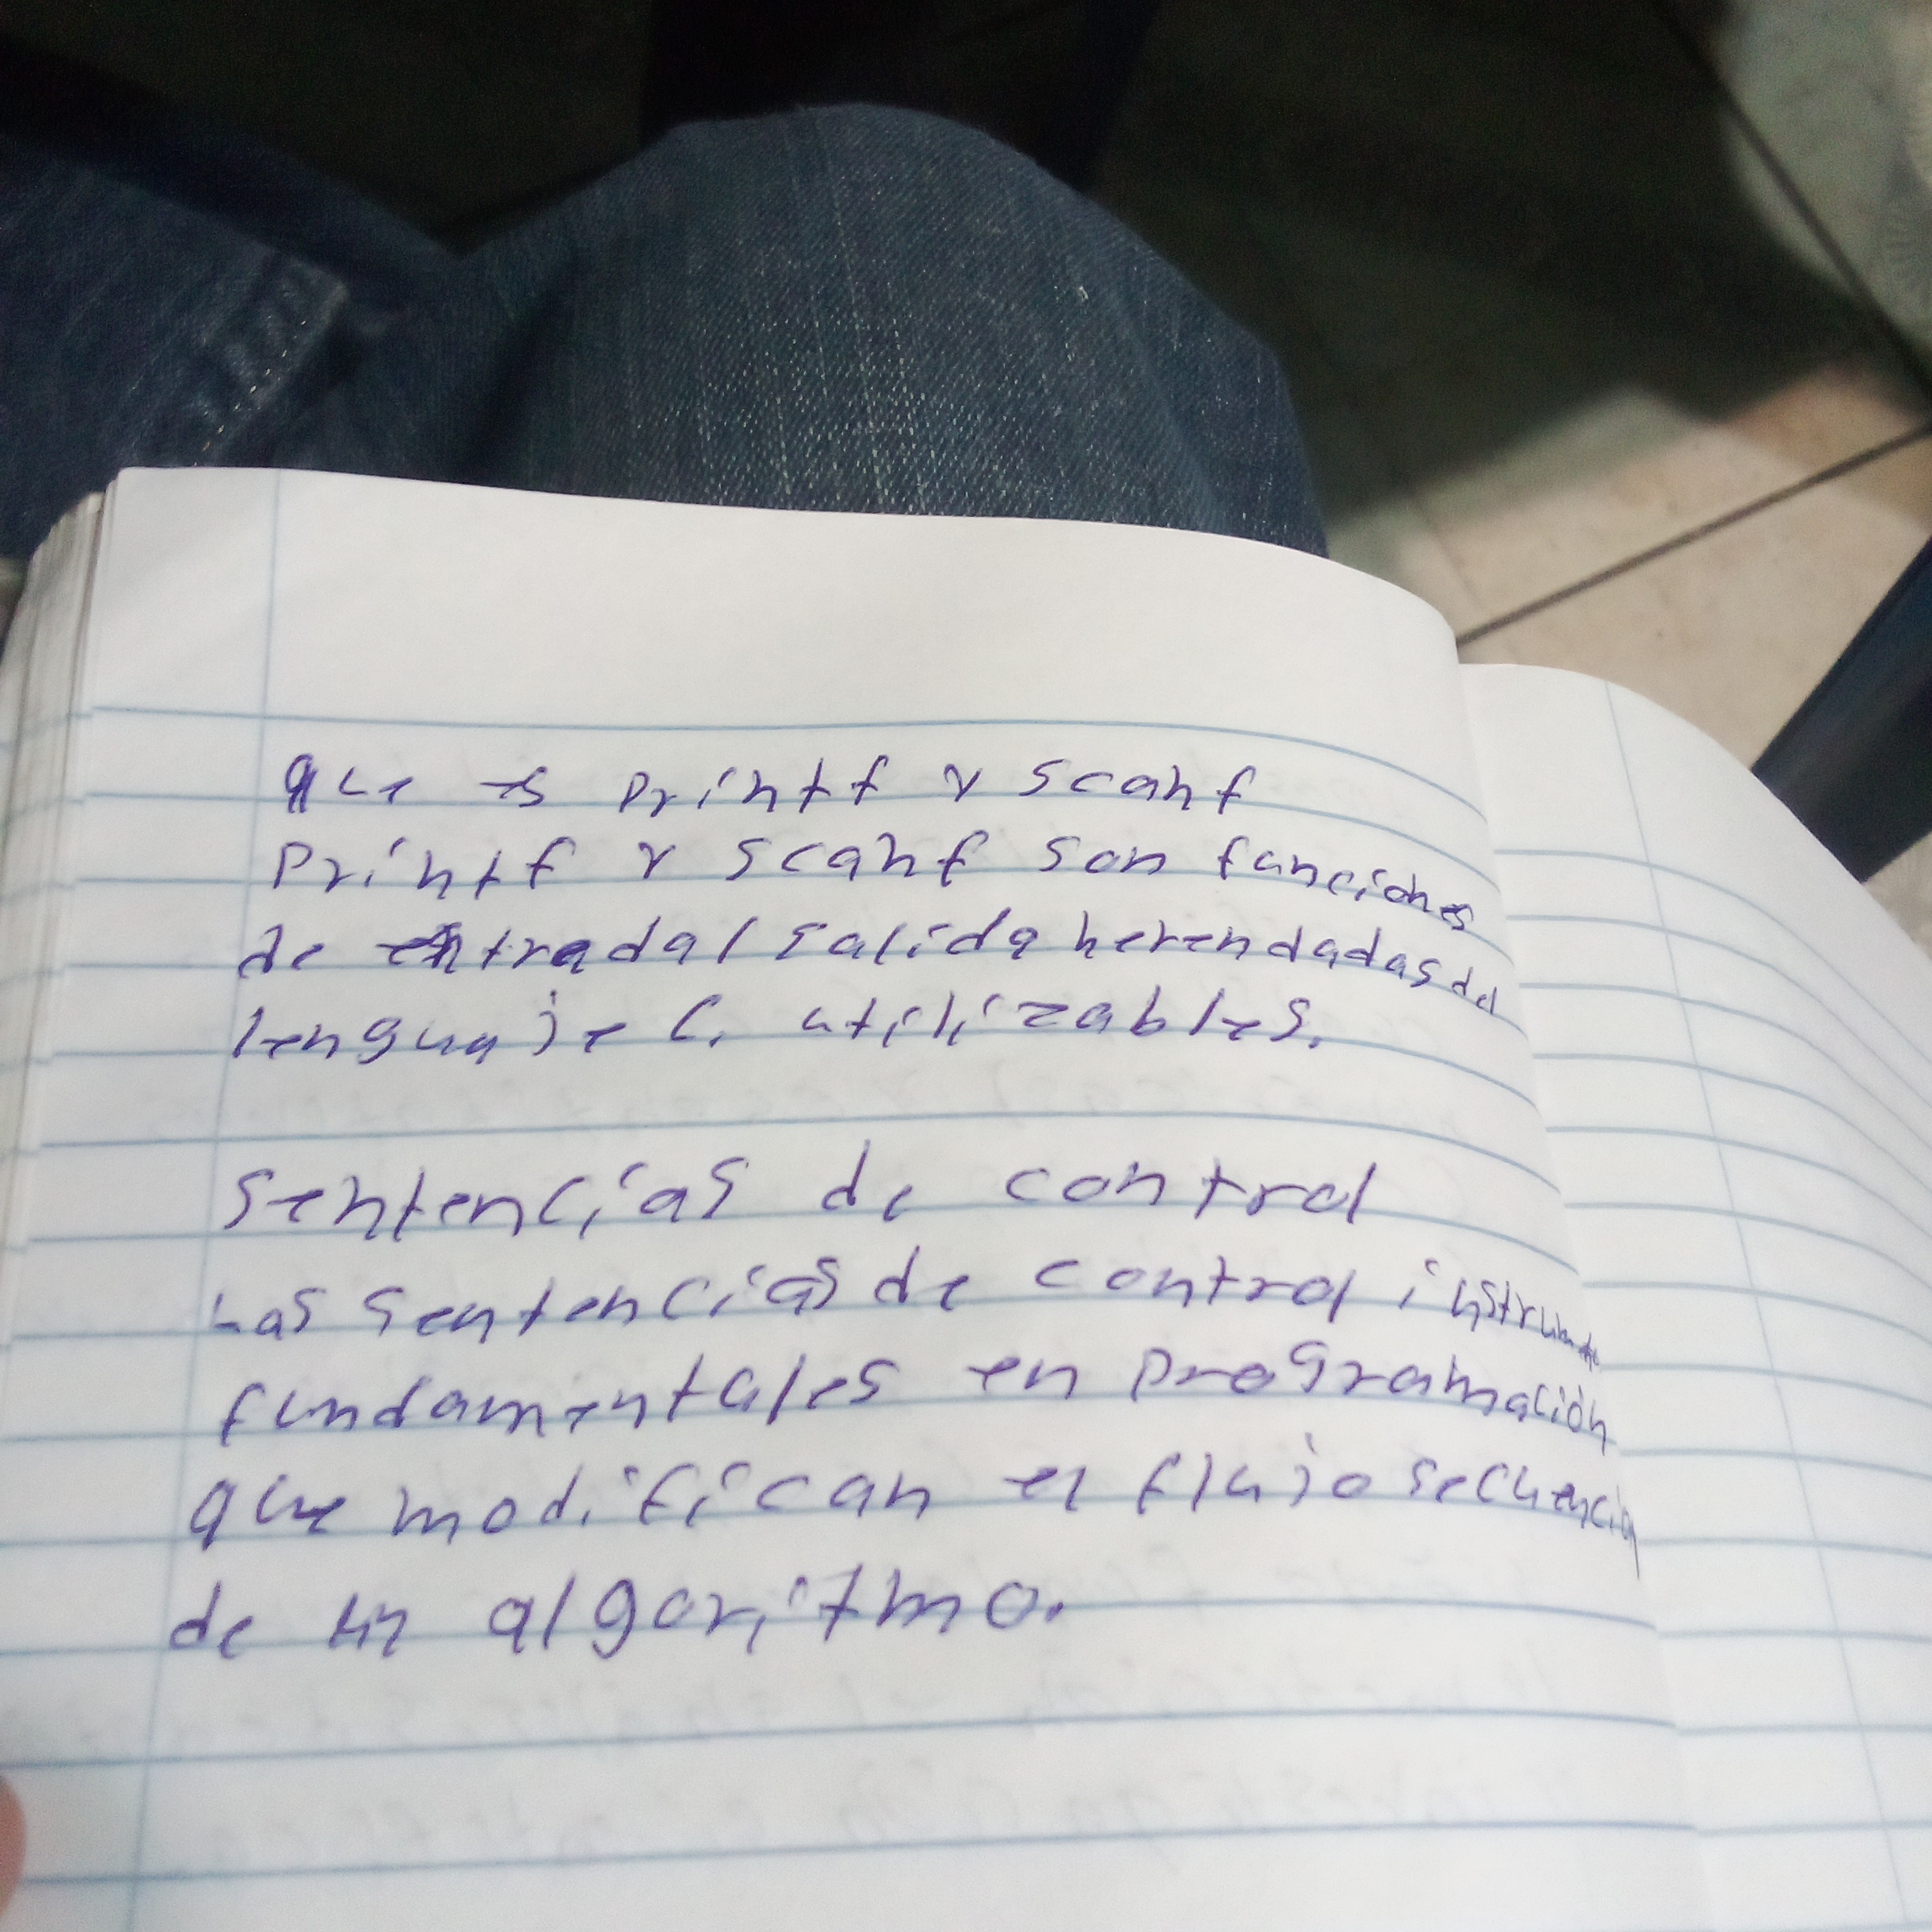 que es printf y scanf
Printf y scanf son funciones
de entrada/salida herendadas del
lenguaje C. utilizables.
Sentencias de control
Las sentencias de control
fundamentales en programación
que modifican el flujo secuencial
de un algoritmo.